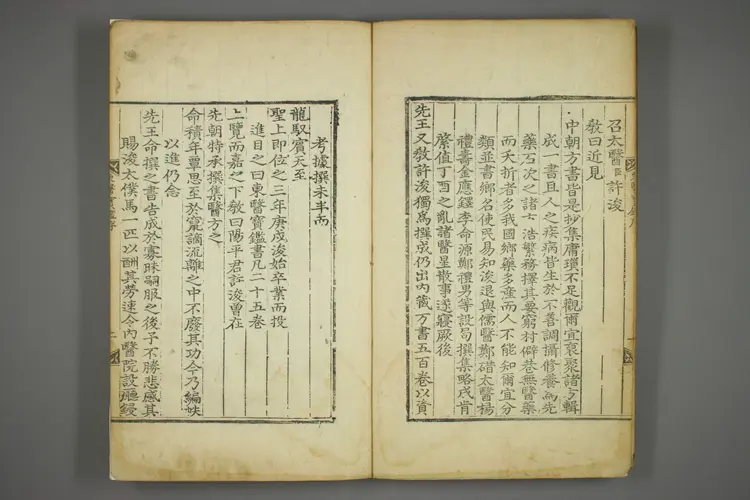 召太醫臣許浚
教曰近見
中朝方書皆是抄集庸瑣不足觀爾宜裒聚諸方輯
成一書且人之疾病皆生於不善調攝修養爲先
藥石次之諸方浩繁務擇其要窮村僻巷無醫藥
而夭折者多我國鄉藥多產而人不能知爾宜分
類並書鄉名使民易知浚退與儒醫鄭碏太醫楊
禮壽金應鐸李命源鄭禮男等設局撰集略成肯
綮值丁酉之亂諸醫星散事遂寢厥後
先王又敎許浚獨爲撰成仍出內藏方書五百卷以資
考據撰未半而
龍馭賓天至
聖上即位之三年庚戌浚始卒業而投
進目之曰東醫寶鑑書凡二十五卷
上覽而嘉之下敎曰陽平君許浚曾在
先朝特承撰集醫方之
命積年覃思至於竄謫流離之中不廢其功今乃編帙
以進仍念
先王命撰之書告成於寡昧嗣服之後予不勝悲感其
賜浚太僕馬一匹以酬其勞速令內醫院設廳鋟